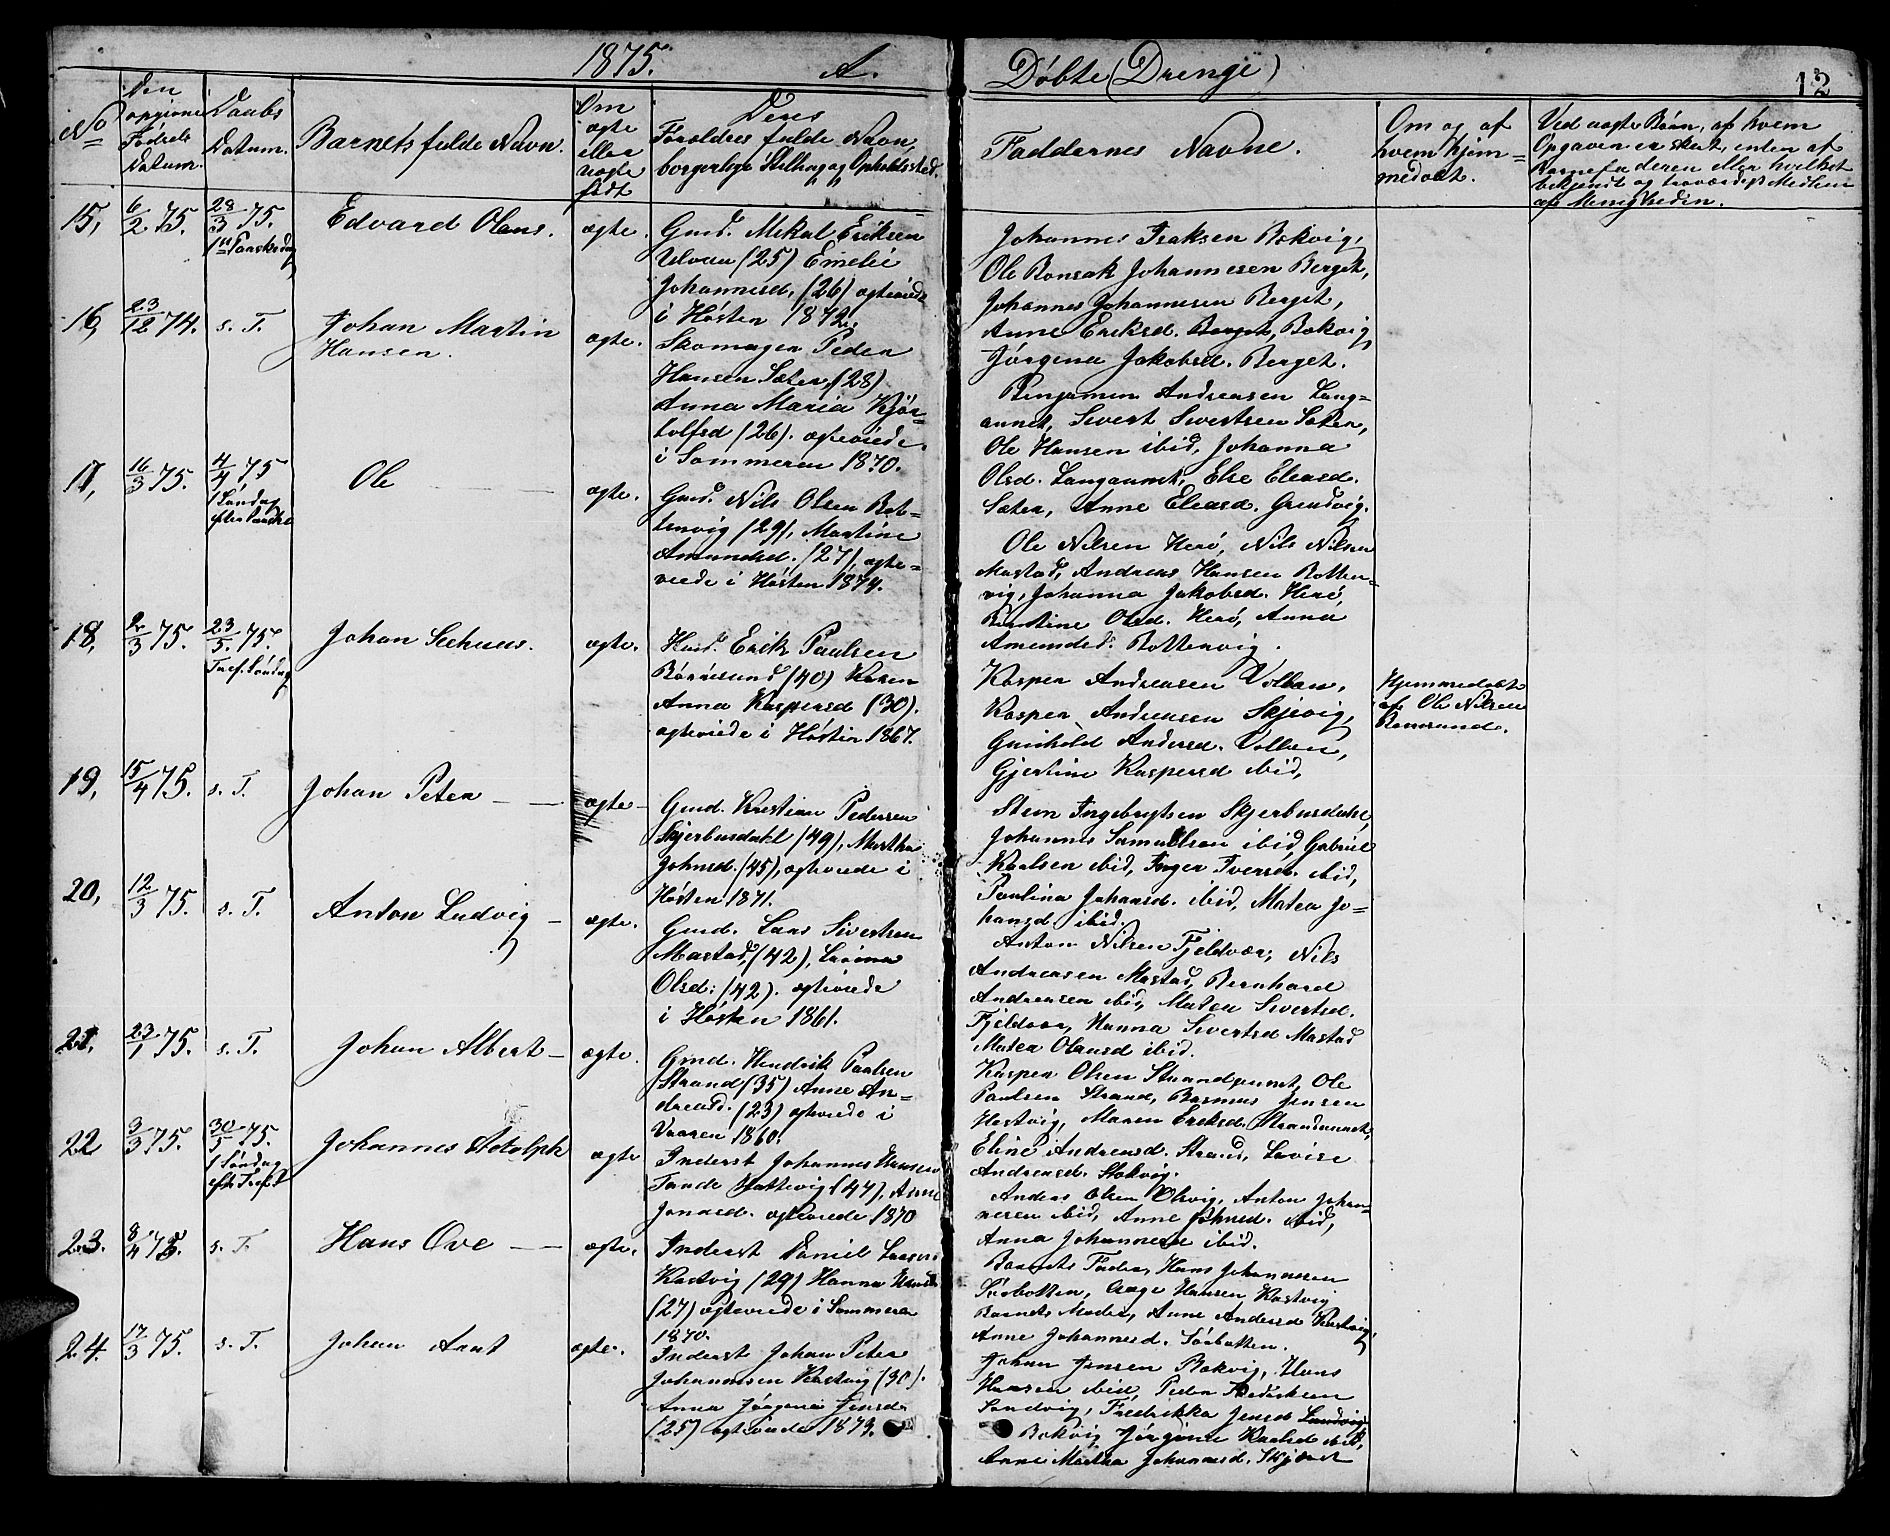 1875. A. Døbte (Drenge) 12
No
Den opgivne Fødsels Datum.
Daabs Datum.
Barnets fulde Navn.
Om ægte eller uægte født
Deres Forældres fulde Navn, borgerlige Stilling og Opholdssted.
Faddernes Navne.
Om og af hvem hjemmedøbt.
Ved uægte Børn, af hvem Opgaven er skeet, enten af Barnefaderen eller hvilket bekjendt og troværdigt Medlem af Menigheden.
15, 6/2 75. 28/3 75. Edvard Olaus. ægte.
Gmd. Mikal Eriksen
(25) Emelie
Johannesd. (26) ægteviede
i Høsten 1872.
Johannes Isaksen Bokvig,
Ole Ronsak Johannesen Berget,
Johannes Johannesen Berget,
Anne Eriksd. Bokvig,
Jørgena Jakobsd. Berget.
16, 23/12 74. s. T. Johan Martin
Hansen. ægte.
Skomager Peder
Hansen Sæter, (28)
Anna Maria Kjør-
tolfsd (26). ægteviede
i Sommeren 1870.
Benjamin Andreasen Lang-
aunet, Sivert Sivertsen Sæter,
Ole Hansen ibid, Johanna
Olsd. Langaunet, Else Eleasd.
Sæter, Anne Eleasd. Grundvig.
17, 16/3 75. 4/4 75
1 Søndag
efter Paaske
Ole ægte.
Gmd. Nils Olsen Bot-
tenvig (29), Martine
Amundsd. (27), ægte-
viede i Høsten 1874.
Ole Nilsen Herø, Nils Nilsen
Mastad, Andreas Hansen Botten-
vig, Johanna Jakobsd. Herø
Olsd. Herø, Anna
Amundsd. Bottenvig.
18, 2/3 75. 23/5 75.
Tref. Søndag
Johan Seehuus. ægte.
Husd. Erik Paulsen
(40) Karen
Anna Kaspersd (30).
ægteviede i Høsten 1867.
Kasper Andreasen Vollan,
Kasper Andreasen Skjevig,
Gunhild Andersd. Vollan,
Gjertine Kaspersd ibid,
Hjemmedøbt
af Ole Nilsen
Ramsund.
19, 15/4 75. s. T. Johan Peter ægte
Gmd. Kristian Pedersen
Skjerbusdahl (49), Martha
Johnsd. (45), ægteviede i
Høsten 1871.
Steen Ingebrigtsen Skjerbusdahl,
Johannes Samuelsen ibid, Gabriel
Karlsen ibid, Inger Iversd. ibid,
Paulina Johansd. ibid, Matea Jo-
hansd. ibid.
20, 12/3 75. s. T. Anton Ludvig ægte.
Gmd. Lars Sivertsen
Mastad, (42),
Olsd: (42). ægteviede
i Høsten 1861.
Anton Nilsen Fjeldvær, Nils
Andreasen Mastad, Bernhard
Andreasen ibid, Matea Sivertsd.
Fjeldvær, Hanna Sivertsd Mastad
Matea Olausd ibid.
21, 23/1 75. s. T. Johan Albert ægte.
Gmd. Hendrik Paulsen
Strand (35) Anne An-
dreasd. (23) ægteviede i
Vaaren 1860.
Kasper Olsen Strandaunet, Ole
Paulsen Strand, Rasmus Jensen
Hestvig, Maren Eriksd. Strandaunet,
Eline Andreasd. Strand, Lovise
Andreasd. Stokvig.
22 3/3 75. 30/5 75.
1 Søndag
eft. Tref.
Johannes Adolph ægte
Inderst Johannes Hansen
(47), Anne
Jonasd. ægteviede 1870
Anders Olsen Olvig, Anton Johan-
nesen ibid, Anne Johnsd. ibid,
Anna Johannesd ibid.
23. 8/4 75. s. T. Hans Ove ægte.
Inderst Daniel Larsen
Kastvig (29) Hanna Hansd.
(27) ægteviede i Sommeren
1870.
Barnets Fader, Hans Johannesen
Sørbotten, Aage Hansen Kastvig
Barnets Moder, Anne Andersd Kastvig,
Anne Johannesd. Sørbotten.
24. 17/3 75. s. T. Johan Arnt ægte.
Inderst Johan Peter
Johannesen Kastvig (30).
Anna Jørgena Jensd.
(25) ægteviede 1873.
Johan Jensen Bokvig, Hans
Hansen ibid, Peder Fredriksen
Sandvig, Fredrikka Jensd Sandvig
Bokvig Jørgine Karlsd ibid,
Anne Martha Johannesd.